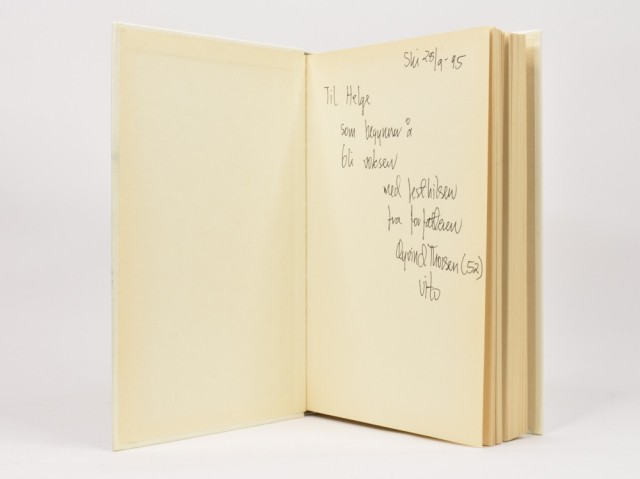 Ski 28/9-95
Til Helge
som begynner å
bli voksen
med festhilsen
fra forfatteren
Øyvind Thorsen (52)